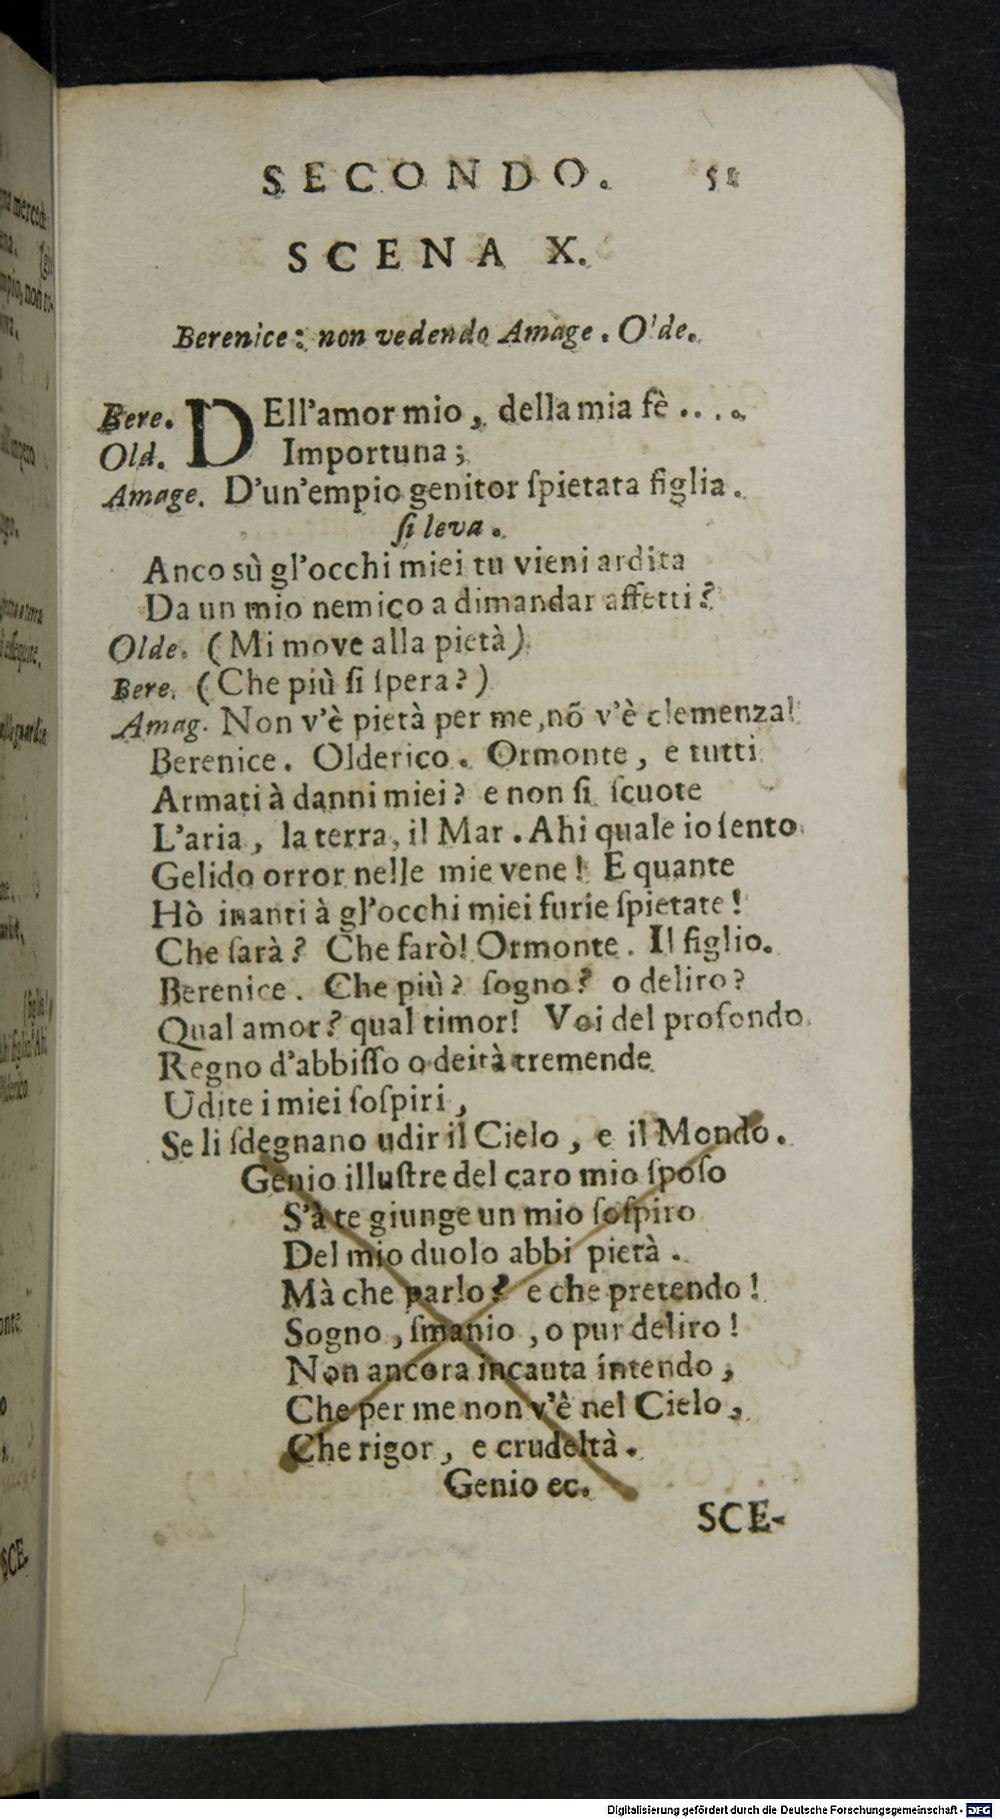 SECONDO. 51
SCENA X.
Berenice: non vedendo Amage. Olde.
Bere. DEll'amor mio, della mia fè ....
Old. Importuna;
Amage. D'un'empio genitor ſpietata figlia.
ſi leva.
Anco sù gl'occhi miei tu vieni ardita
Da un mio nemico a dimandar affetti?
Olde. (Mi move alla pietà)
Bere. (Che più ſi ſpera?)
Amag. Non v'è pietà per me, nõ v'è clemenza!
Berenice. Olderico. Ormonte, e tutti
Armati à danni miei? e non ſi ſcuote
L'aria, la terra, il Mar. Ahi quale io ſento
Gelido orror nelle mie vene! E quante
Hò inanti à gl'occhi miei furie ſpietate!
Che ſarà? Che farò! Ormonte. Il figlio.
Berenice. Che più? ſogno? o deliro?
Qual amor? qual timor! Voi del profondo
Regno d'abbiſſo o deità tremende
Udite i miei ſoſpiri,
Se li ſdegnano udir il Cielo, e il Mondo.
Genio illuſtre del caro mio ſpoſo
S'à te giunge un mio ſoſpiro
Del mio duolo abbi pietà.
Mà che parlo? e che pretendo!
Sogno, ſmanio, o pur deliro!
Non ancora incauta intendo,
Che per me non v'è nel Cielo,
Che rigor, e crudeltà.
Genio ec.
SCE-
mercede
ena.
non
SCE.
Digitalisierung gefördert durch die Deutsche Forschungsgemeinschaft - DFG